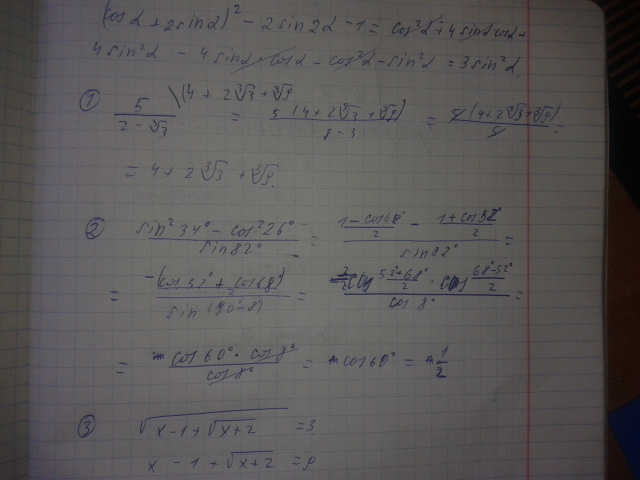 (cos α + 2 sin α)² - 2 sin 2α - 1 = cos²α + 4 sin α cos α +
4 sin²α - 4 sin α · cos α - cos²α - sin²α = 3 sin²α.
① 5 \(4 + 2∛3 + ∛9 / 2 - ∛3 = 5 (4 + 2∛3 + ∛9) / 8 - 3 = 5 (4 + 2∛3 + ∛9) / 5 =
= 4 + 2∛3 + ∛9.
② sin² 34° - cos² 26° / sin 82° = 1 - cos 68° / 2 - 1 + cos 52° / 2 / sin 82° =
= -(cos 52° + cos 68°) / 2 / sin (90° - 8) = - 2/2 cos 52° + 68° / 2 · cos 68° - 52° / 2 / cos 8° =
= - cos 60° · cos 8° / cos 8° = - cos 60° = - 1/2
③ √(x - 1 + √(x + 2)) = 3
x - 1 + √(x + 2) = 9